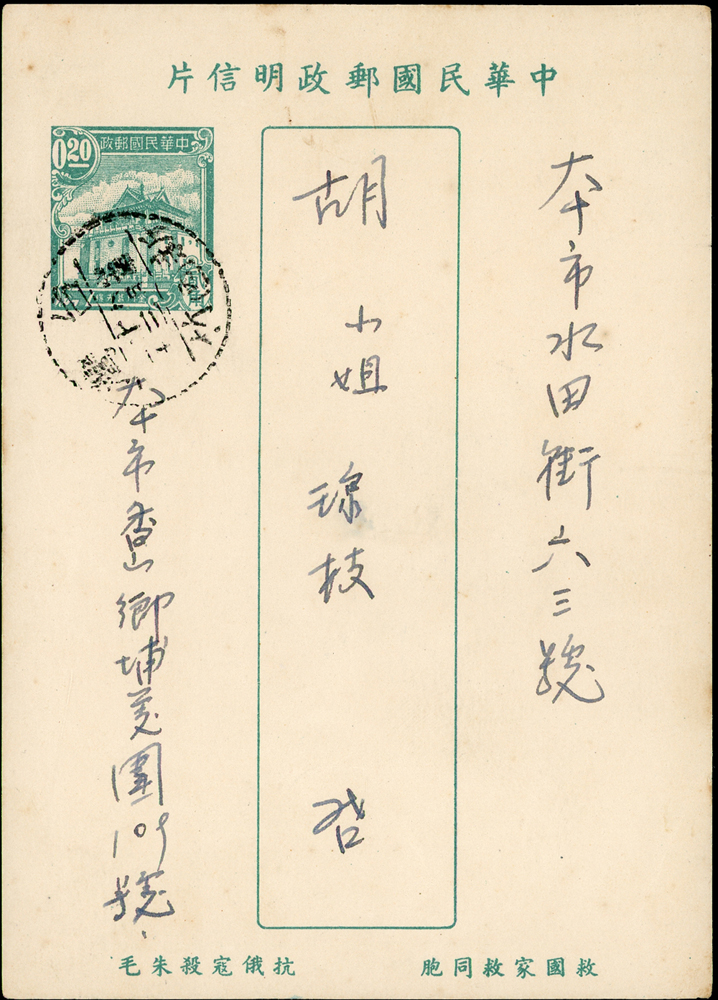 中華民國郵政明信片
中華民國郵政
0.20
本市水田街六三號
胡小姐瓊枝 啟
本市香山鄉埔美圍109號
救國家救同胞
抗俄寇殺朱毛